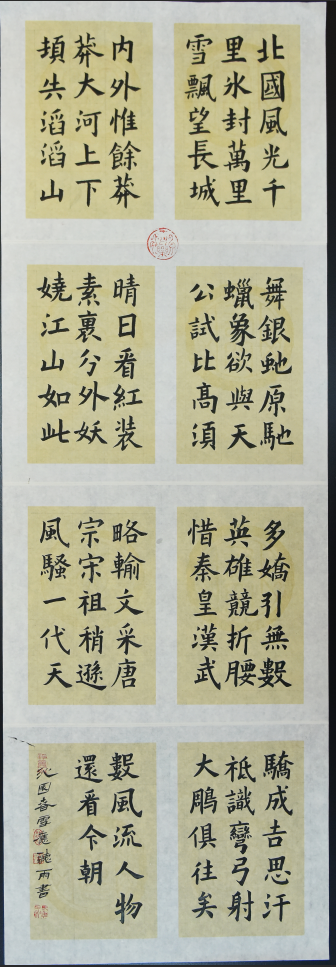 北國風光千
里氷封萬里
雪飄望長城
內外惟餘莽
莽大河上下
頓失滔滔山
舞銀虵原馳
蠟象欲與天
公試比髙須
晴日看紅装
素裹分外妖
嬈江山如此
多嬌引無數
英雄競折腰
惜秦皇漢武
略輸文采唐
宗宋祖稍遜
風騷一代天
驕成吉思汗
祗識彎弓射
大鵰俱往矣
數風流人物
還看今朝
沁园春雪 雨書